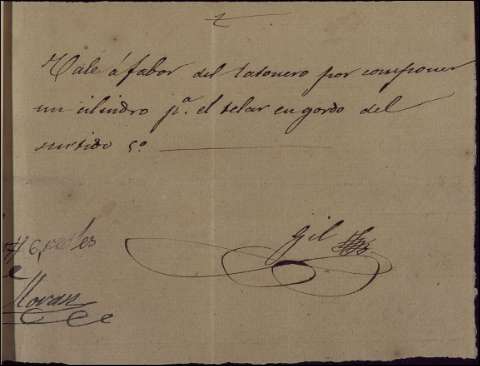 Vale á fabor del latonero por componer
un cilindro pª. el telar en gordo del
surtido 5º
Gil
Moran